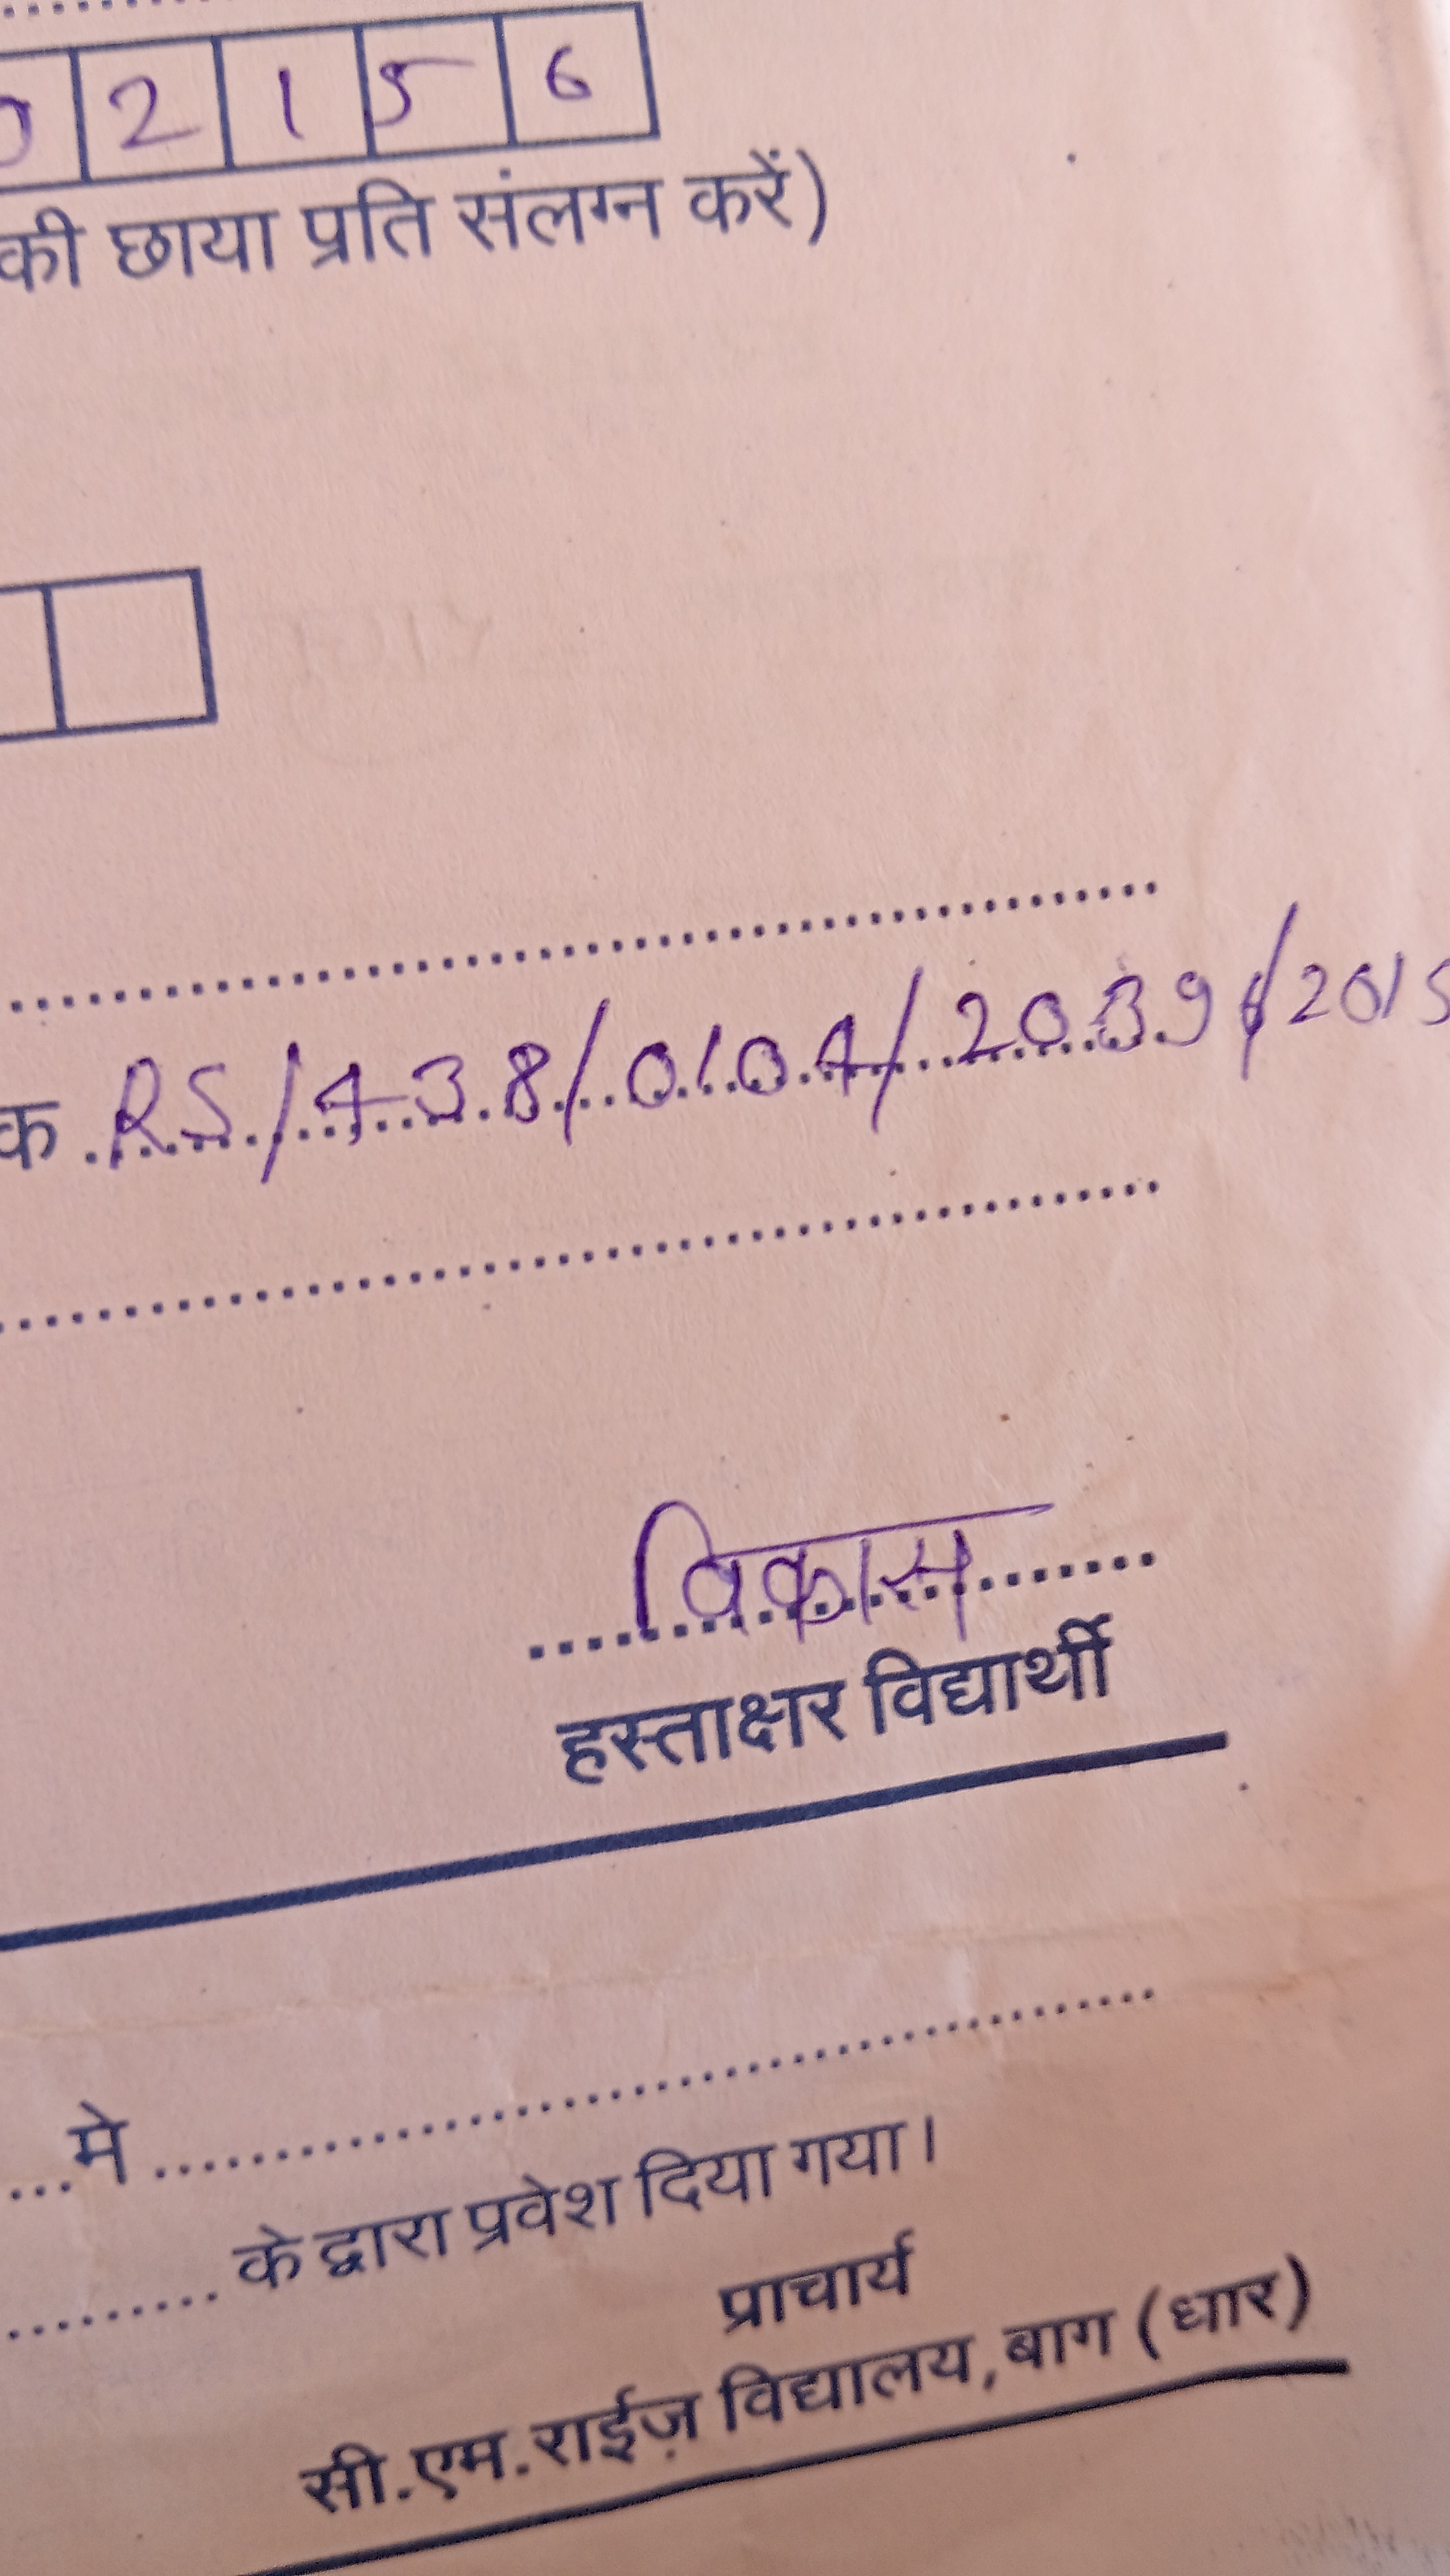 0 2 1 5 6
की छाया प्रति संलग्न करें)
क RS/438/0104/2039/2015
विकास
हस्ताक्षर विद्यार्थी
मे
के द्वारा प्रवेश दिया गया।
प्राचार्य
सी.एम.राईज़ विद्यालय, बाग (धार)